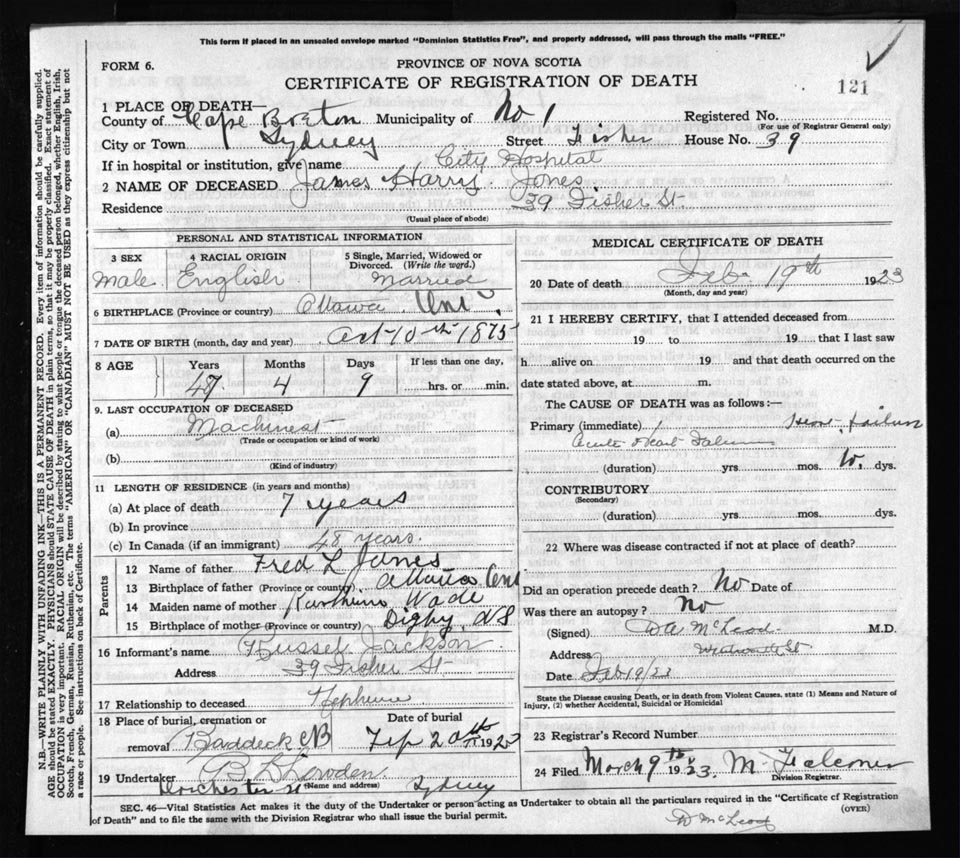 This form if placed in an unsealed envelope marked "Dominion Statistics Free", and properly addressed, will pass through the mails "FREE."
FORM 6.
PROVINCE OF NOVA SCOTIA
CERTIFICATE OF REGISTRATION OF DEATH
121
1 PLACE OF DEATH—
County of Cape Breton Municipality of No 1 Registered No.
(For use of Registrar General only)
City or Town Sydney Street Fisher House No. 39
If in hospital or institution, give name City Hospital
2 NAME OF DECEASED James Harry Jones
Residence 39 Fisher St.
(Usual place of abode)
PERSONAL AND STATISTICAL INFORMATION
3 SEX
Male
4 RACIAL ORIGIN
English
5 Single, Married, Widowed or Divorced. (Write the word.)
Married
6 BIRTHPLACE (Province or country) Ottawa Ont
7 DATE OF BIRTH (month, day and year) Oct 10th 1875
8 AGE Years Months Days If less than one day,
47 4 9 hrs. or min.
9. LAST OCCUPATION OF DECEASED
(a) Machinest
(Trade or occupation or kind of work)
(b)
(Kind of industry)
11 LENGTH OF RESIDENCE (in years and months)
(a) At place of death 7 years
(b) In province
(c) In Canada (if an immigrant) 48 years.
Parents
12 Name of father Fred L Jones
13 Birthplace of father (Province or country) Ottawa Ont
14 Maiden name of mother Wade
15 Birthplace of mother (Province or country) Digby NS
16 Informant's name Russel Jackson
Address 39 Fisher St
17 Relationship to deceased Nephew
18 Place of burial, cremation or Date of burial
removal Baddeck CB Feb 20th 192
19 Undertaker
(Name and address)
Dorchester St Sydney
MEDICAL CERTIFICATE OF DEATH
20 Date of death Feb. 19th 1923
(Month, day and year)
21 I HEREBY CERTIFY, that I attended deceased from
19 to 19 that I last saw
h alive on 19 and that death occurred on the
date stated above, at m.
The CAUSE OF DEATH was as follows:—
Primary (immediate) Heart failure
Acute Heart
(duration) yrs. mos. 10, dys.
CONTRIBUTORY
(Secondary)
(duration) yrs. mos. dys.
22 Where was disease contracted if not at place of death?
Did an operation precede death? No Date of
Was there an autopsy? No
(Signed) DA McLeod M.D.
Address Wentworth St
Date Feb 19/23
State the Disease causing Death, or in death from Violent Causes, state (1) Means and Nature of Injury, (2) whether Accidental, Suicidal or Homicidal
23 Registrar's Record Number
24 Filed March 9th 1923 M Falconer
Division Registrar.
SEC. 46—Vital Statistics Act makes it the duty of the Undertaker or person acting as Undertaker to obtain all the particulars required in the "Certificate of Registration
of Death" and to file the same with the Division Registrar who shall issue the burial permit.
(OVER)
D McLeod
N.B.—WRITE PLAINLY WITH UNFADING INK—THIS IS A PERMANENT RECORD. Every item of information should be carefully supplied.
AGE should be stated EXACTLY. PHYSICIANS should STATE CAUSE OF DEATH in plain terms, so that it may be properly classified. Exact statement of
OCCUPATION is very important. RACIAL ORIGIN will be described by stating to what people or tongue the deceased person belonged, whether English, Irish,
Scotch, French, German, Russian, Ruthenian, etc. The terms "AMERICAN" OR "CANADIAN" MUST NOT BE USED as they express citizenship but not
a race or people. See instructions on back of Certificate.